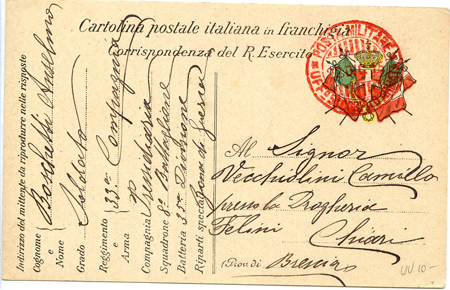 Cartolina postale italiana in franchigia
Corrispondenza del R. Esercito
POSTA MILITARE
Al Signor
Vecchiolini Camillo
presso la Drogheria
Felini Chiari
(Prov. di Brescia
Indirizzo del mittente da riprodurre nelle risposte
Cognome e Nome Boschetti Anselmo
Grado Soldato
Reggimento e Arma 33ª Compagnia
Compagnia presidiaria
Squadrone 8° Battaglione
Batteria 3ª Divisione
Riparti speciali Zona di guerra